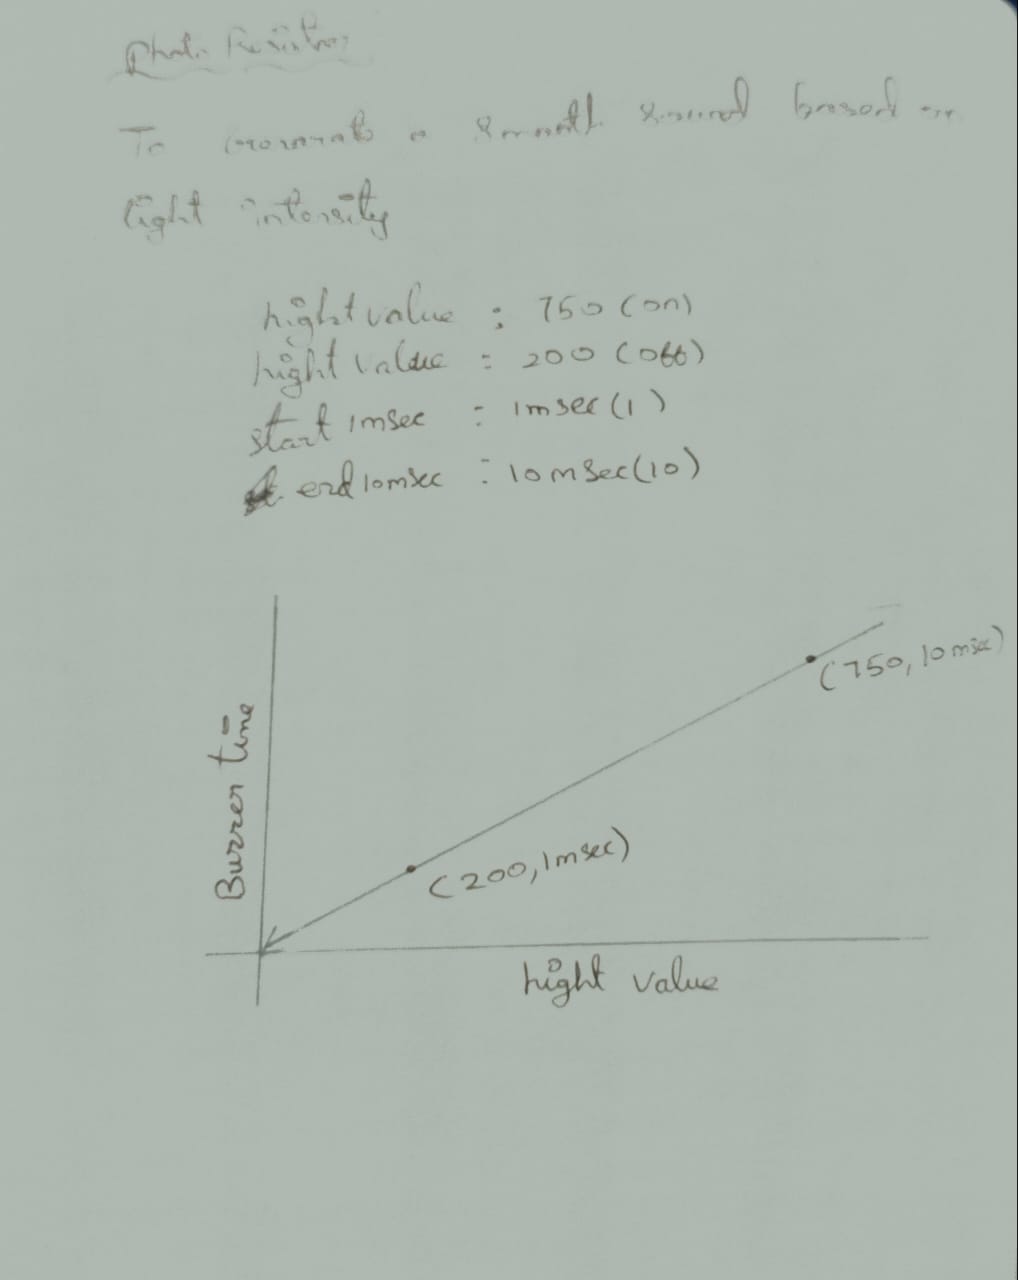 Photo Resistor
To generate a smooth sound based on
light intensity
hight value : 750 (on)
hight value : 200 (off)
start 1msec : 1msec (1)
end 10msec : 10msec (10)
(750, 10msec)
Buzzer time
(200, 1msec)
hight value